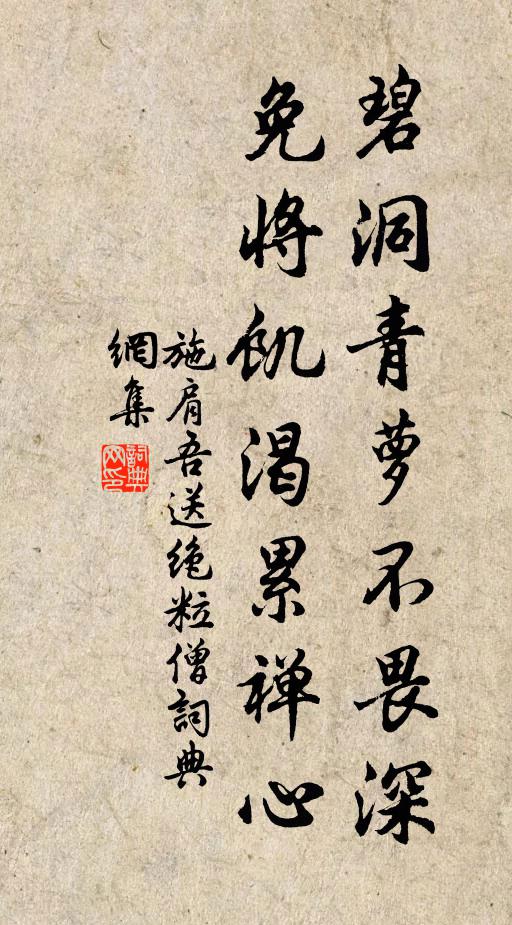 碧洞青萝不畏深
免将饥渴累禅心
施肩吾送绝粒僧詞典
網集
詞典
网印